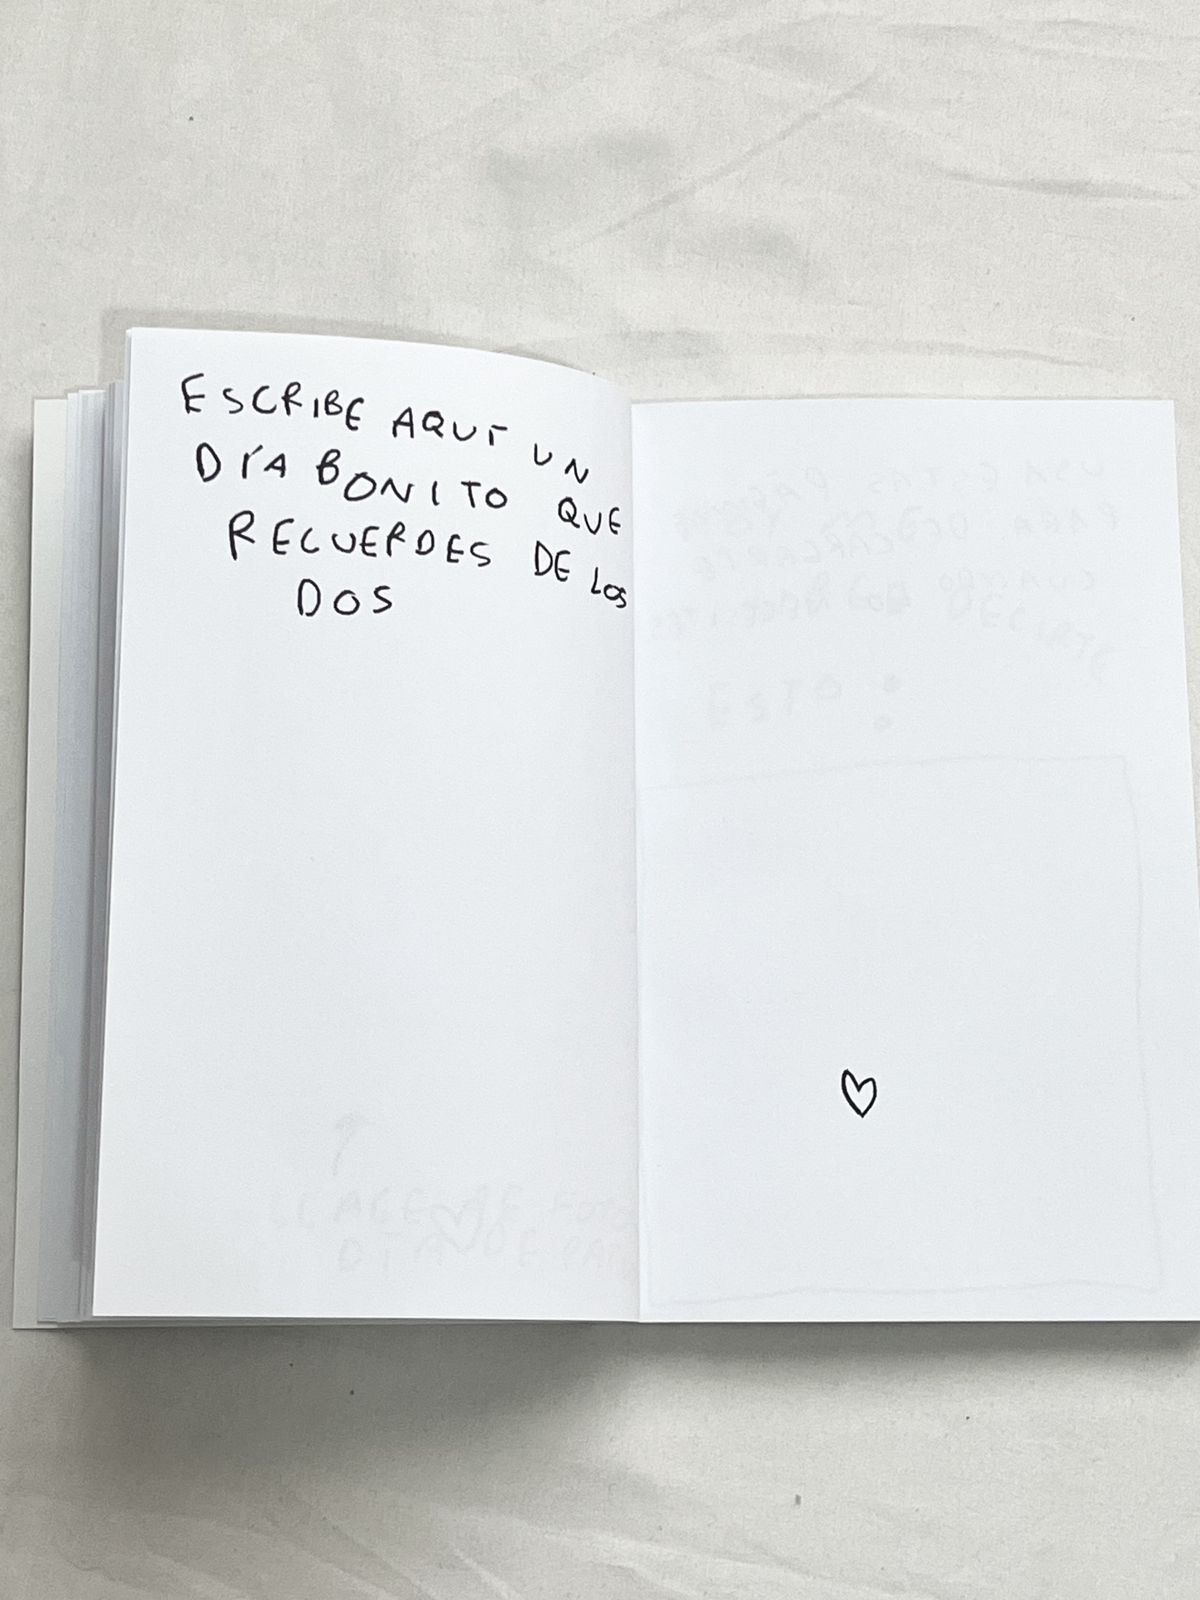 ESCRIBE AQUÍ UN
DÍA BONITO QUE
RECUERDES DE LOS
DOS
ESTO :